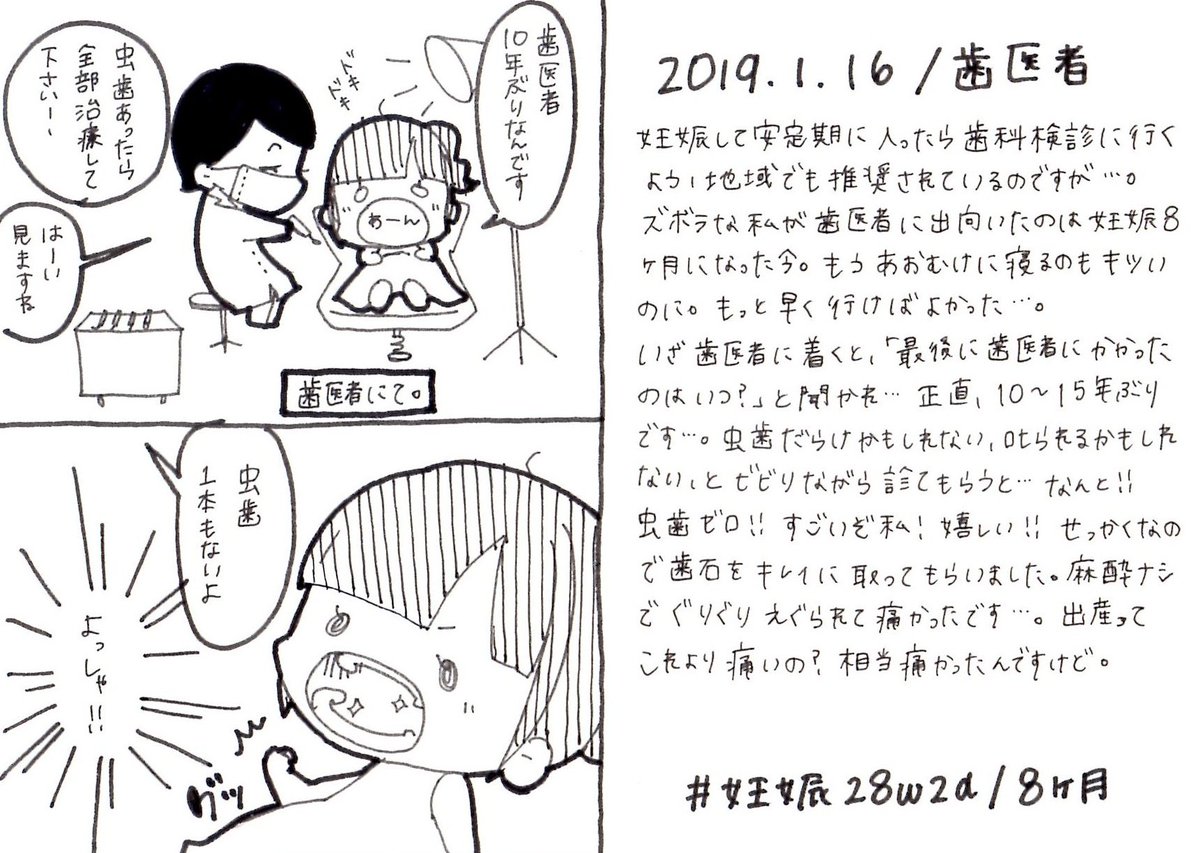 歯医者
10年ぶりなんです
ドキ
ドキ
あーん
虫歯あったら
全部治療して
下さいー
はーい
見ますね
歯医者にて。
虫歯
1本もないよ
よっしゃ!!
グッ
2019.1.16/歯医者
妊娠して安定期に入ったら歯科検診に行く
よう、地域でも推奨されているのですが…。
ズボラな私が歯医者に出向いたのは妊娠8
ヶ月になった今。もうあおむけに寝るのもキツい
のに。もっと早く行けばよかった…。
いざ歯医者に着くと、「最後に歯医者にかかった
のはいつ?」と聞かれ… 正直、10〜15年ぶり
です…。虫歯だらけかもしれない、叱られるかもしれ
ない、とビビりながら診てもらうと… なんと!!
虫歯ゼロ!! すごいぞ私! 嬉しい!! せっかくなの
で歯石をキレイに取ってもらいました。麻酔ナシ
でぐりぐりえぐられて痛かったです…。出産って
これより痛いの? 相当痛かったんですけど。
#妊娠28w2d/8ヶ月